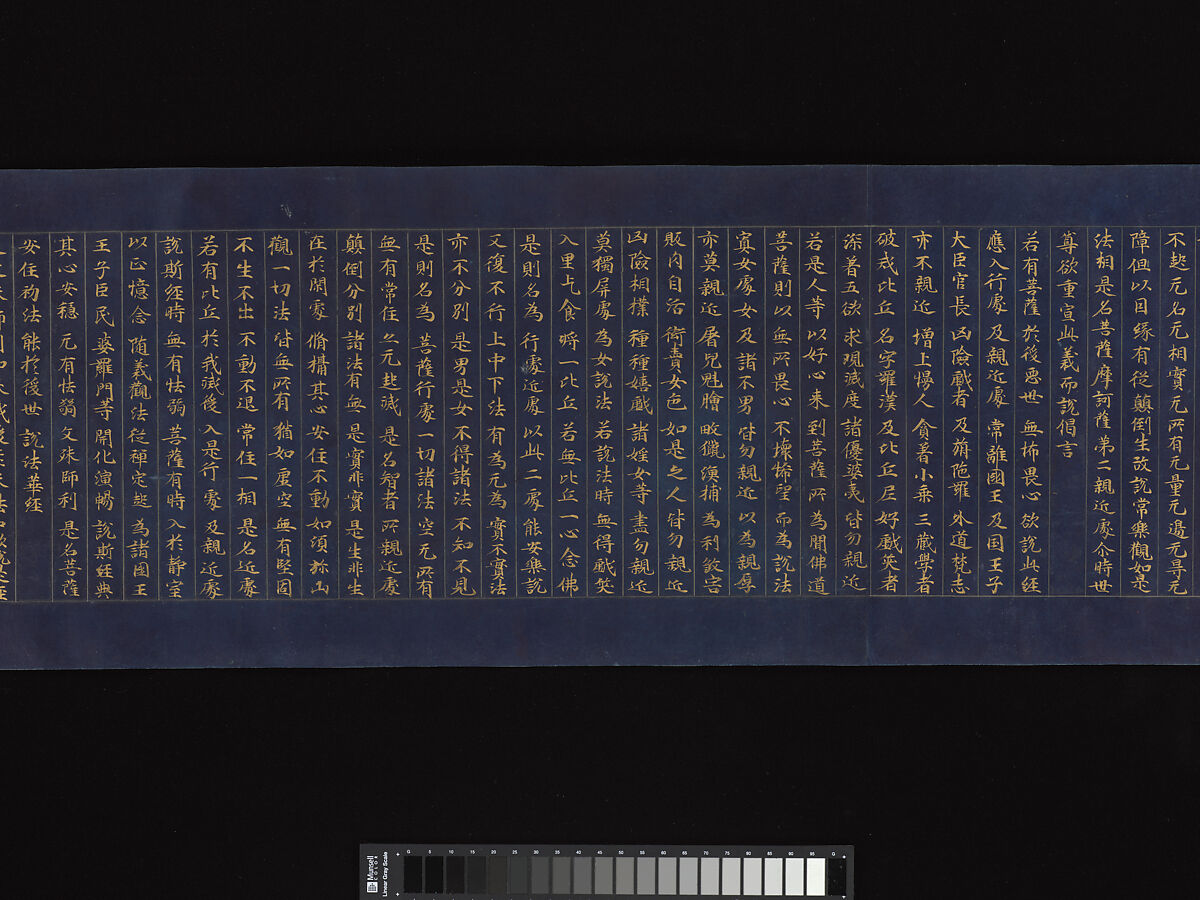 不起无名无相實无所有无量无邊无㝵无
障但以因緣有從顛倒生故說常樂觀如是
法相是名菩薩摩訶薩第二親近處尒時世
尊欲重宣此義而說偈言
若有菩薩 於後惡世 無怖畏心 欲說此經
應入行處 及親近處 常離國王 及国王子
大臣官長 凶險戲者 及旃陁羅 外道梵志
亦不親近 增上慢人 貪著小乘 三藏學者
破戒比丘 名字羅漢 及比丘尼 好戲笑者
深著五欲 求現滅度 諸優婆夷 皆勿親近
若是人等 以好心来 到菩薩所 為聞佛道
菩薩則以 無所畏心 不懷悕望 而為說法
寡女處女 及諸不男 皆勿親近 以為親厚
亦莫親近 屠兒魁膾 畋獵漁捕 為利煞害
販肉自活 衒賣女色 如是之人 皆勿親近
凶險相撲 種種嬉戲 諸婬女等 盡勿親近
莫獨屏處 為女說法 若說法時 無得戲笑
入里乞食 將一比丘 若無比丘 一心念佛
是則名為 行處近處 以此二處 能安樂說
又復不行 上中下法 有為无為 實不實法
亦不分別 是男是女 不得諸法 不知不見
是則名為 菩薩行處 一切諸法 空无所有
無有常住 亦无起滅 是名智者 所親近處
顛倒分別 諸法有無 是實非實 是生非生
在於閑處 脩攝其心 安住不動 如須弥山
觀一切法 皆無所有 猶如虛空 無有堅固
不生不出 不動不退 常住一相 是名近處
若有比丘 於我滅後 入是行處 及親近處
說斯經時 無有怯弱 菩薩有時 入於靜室
以正憶念 随義觀法 從禪定起 為諸國王
王子臣民 婆羅門等 開化演暢 說斯經典
其心安穩 无有怯弱 文殊師利 是名菩薩
安住初法 能於後世 說法華經
Munsell
COLOR
Linear Gray Scale
G 5 10 15 20 25 30 35 40 45 50 55 60 65 70 75 80 85 90 95 G